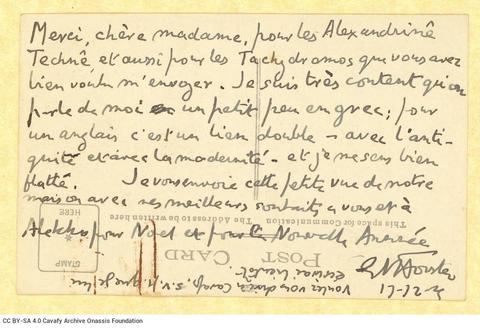 Merci, chère madame, pour les Alexandrinê
Technê et aussi pour les Tachydromos que vous avez
bien voulu m'envoyer. Je suis très content qu'on
parle de moi un petit peu en grec; pour
un anglais c'est un lien double – avec l'anti-
quité et avec la modernité – et je me sens bien
flatté. Je vous envoie cette petite vue de notre
maison avec mes meilleurs souhaits a vous et à
Alekko pour Noel et pour la Nouvelle Année
EMForster
This space for Communication
The Address to be written here
POST CARD
STAMP
HERE
Voulez vous dire à Cavafy, s.v.p. que je lui
écrirai bientôt
CC BY-SA 4.0 Cavafy Archive Onassis Foundation